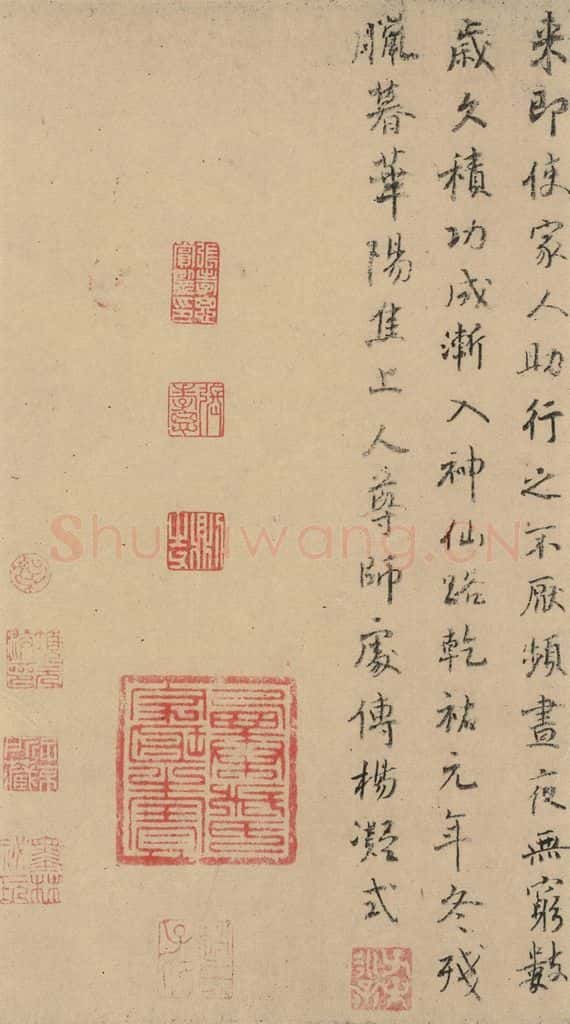 来即使家人助行之不厭頻晝夜無窮數
歲久積功成漸入神仙路乾祐元年冬残
臘暮華陽焦上人尊師處傳楊凝式
張孝思賞鑒印
張孝思
Shufawang.CN